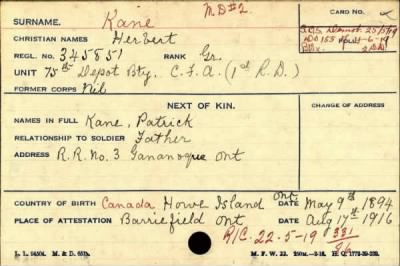 SURNAME. Kane M.D#2 CARD NO. 2
CHRISTIAN NAMES Herbert
REGL. NO. 345851 RANK Gr.
UNIT 75th Depot Bty. C.F.A. (1st R.D.)
FORMER CORPS Nil
NEXT OF KIN. CHANGE OF ADDRESS
NAMES IN FULL Kane, Patrick
RELATIONSHIP TO SOLDIER Father
ADDRESS R.R. No. 3 Gananoque Ont
COUNTRY OF BIRTH Canada Howe Island Ont DATE May 9th 1894
PLACE OF ATTESTATION Barriefield Ont DATE Aug 17th 1916
R/C. 22-5-19 331
L. L. 94504. M. & D. 6575. M. F. W. 22. H. Q. 1772-39-339.